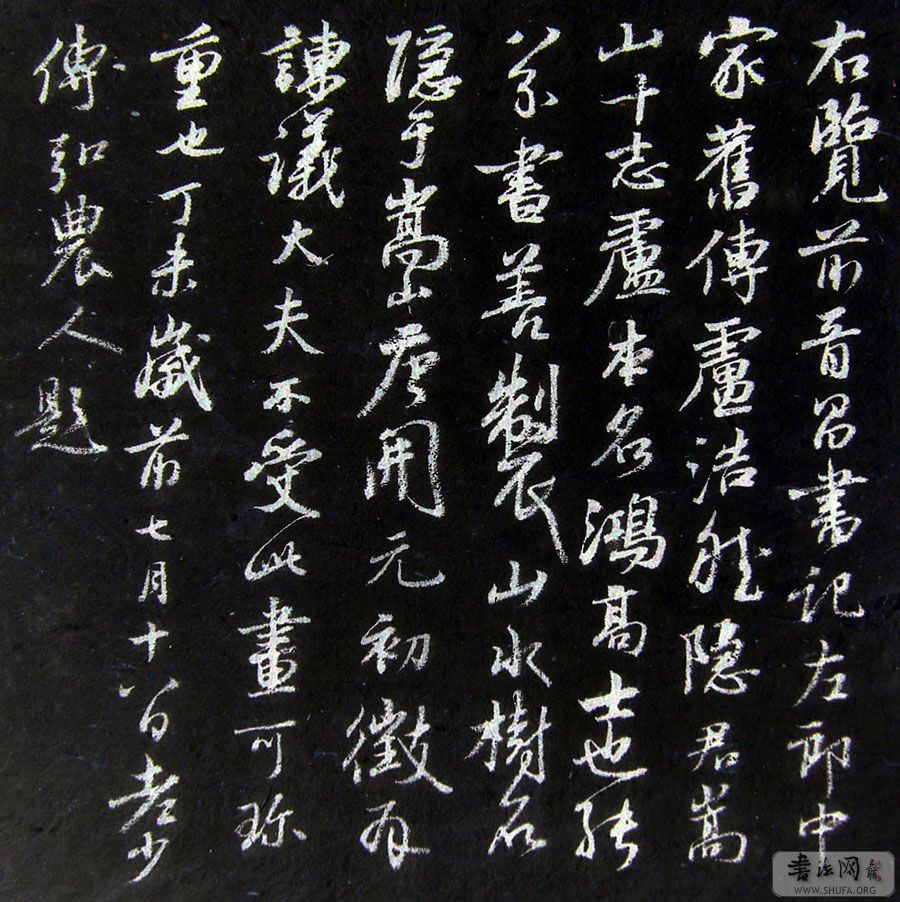 右覽前晉昌書記左郎中
家舊傳盧浩然隱君嵩
山十志盧本名鴻高士也能
八分書善製山水樹石
隱于嵩山唐開元初徵為
諫議大夫不受此畫可珎
重也丁未歲前七月十八日老少
傅弘農人題
书法网
WWW.SHUFA.ORG